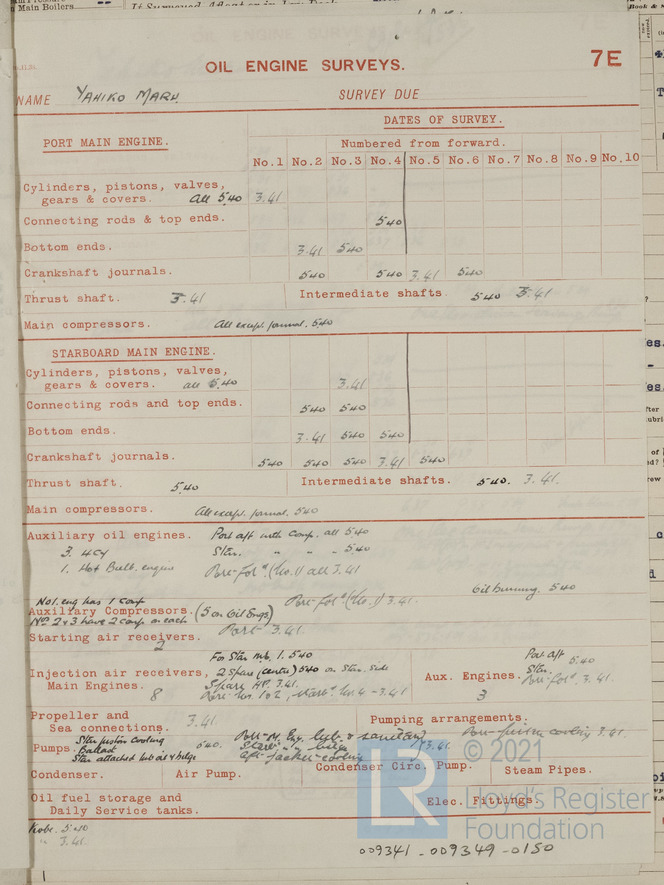 Main Boilers
OIL ENGINE SURVEYS.
7E
NAME YAHIKO MARU
SURVEY DUE
DATES OF SURVEY.
PORT MAIN ENGINE.
Numbered from forward.
No.1 No.2 No.3 No.4 No.5 No.6 No.7 No.8 No.9 No.10
Cylinders, pistons, valves,
gears & covers. All 5.40 3.41
Connecting rods & top ends. 5.40
Bottom ends. 3.41 5.40
Crankshaft journals. 5.40 5.40 3.41 5.40
Thrust shaft. 3.41 Intermediate shafts. 5.40 3.41
Main compressors. All except journal. 5.40
STARBOARD MAIN ENGINE.
Cylinders, pistons, valves,
gears & covers. all 5.40 3.41
Connecting rods and top ends. 5.40 5.40
Bottom ends. 3.41 5.40 5.40
Crankshaft journals. 5.40 5.40 5.40 3.41 5.40
Thrust shaft. 5.40 Intermediate shafts. 5.40. 3.41.
Main compressors. All except journal. 5.40
Auxiliary oil engines. Port aft with comp. all 5.40
3. 4cy Star. " " " 5.40
1. Hot Bulb. engine (No.1) all 3.41
Oil Burning. 5.40
No1. eng has 1 comp (No.1) 3.41.
Auxiliary Compressors. (5 on Oil Engs)
Nos 2 & 3 have 2 comp on each
Port 3.41.
Starting air receivers.
2
For Star M.E. 1. 5.40
Injection air receivers, 2 Spare (centre) 5.40 on Star. side
Main Engines. Spare HP. 3.41.
8 3.41
Aux. Engines. Port aft
Star. 5.40
3.41.
3
Propeller and
Sea connections. 3.41.
Pumping arrangements.
Port piston cooling 3.41.
Pumps. Star piston cooling
Ballast 5.40.
Star attached lub oil & bilge
Port M. Eng. lub. & sanitary
Star " " bilge 3.41.
jacket cooling
Condenser. Air Pump. Condenser Circ. Pump. Steam Pipes.
Oil fuel storage and
Daily Service tanks.
Elec. Fittings.
Kobe. 5.40
" 3.41.
LR
© 2021
Lloyd's Register
Foundation
009341-009349-0150